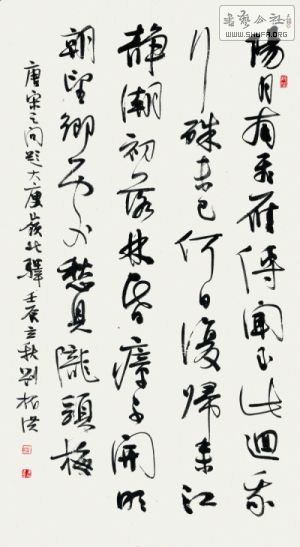 書藝公社
WWW.SHUFA.ORG
陽月南飛雁傳聞至此迴我
行殊未已何日復歸来江
静潮初落林昏瘴不開明
朝望鄉處應見隴頭梅
唐宋之問題大庾嶺北驛 壬辰立秋 劉